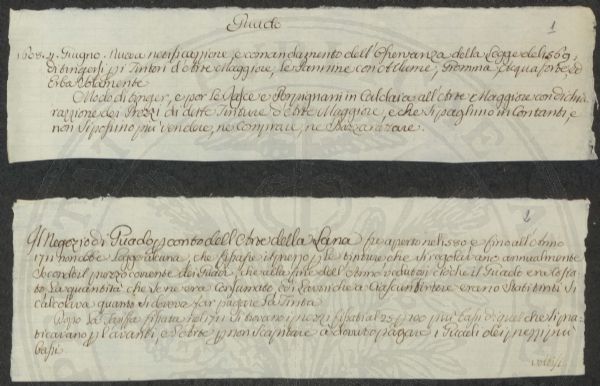 Guado
1
1608. 4. Giugno. Nuova notificazione, e comandamento dell'Osservanza della Legge del 1569.
di tingersi pi Tintori d'Arte Maggiore, le Stamine con Allume, Gromma, e
Erba solamente
Modo di tinger, e per le Rasce e Perpignani in Caldaia all'Arte Maggiore con dichia
razione dei Prezzi di dette Tinture d'Arte Maggiore, e che si paghino in Contanti, e
non si possino più vendere, ne Comprare, ne Barrattare.
2
Il Negozio di Guado p conto dell'Arte della Lana fu aperto nel 1580 e fino all'Anno
1711 non dot e Legge alcuna, che fissasse i prezzi, le tinture che si regolavano annualmente
secondo il prezzo corrente dei Guadi, che alla fine dell'Anno veduto si ciò che il Guado era costa
to. La quantità che se ne era Consumato, coi Lavori che a Ciascun Tintore erano Stati tinti si
Calcolava quanto si doveva far pagare la Tinta.
Dopo la tariffa fissata nel 1711 si trovano i prezzi fissati al 25 p 100 più bassi di quel che si pra
ticavano p l'avanti, e l'Arte p non scapitare a dovuto pagare i Guadi dei prezzi più
bassi.